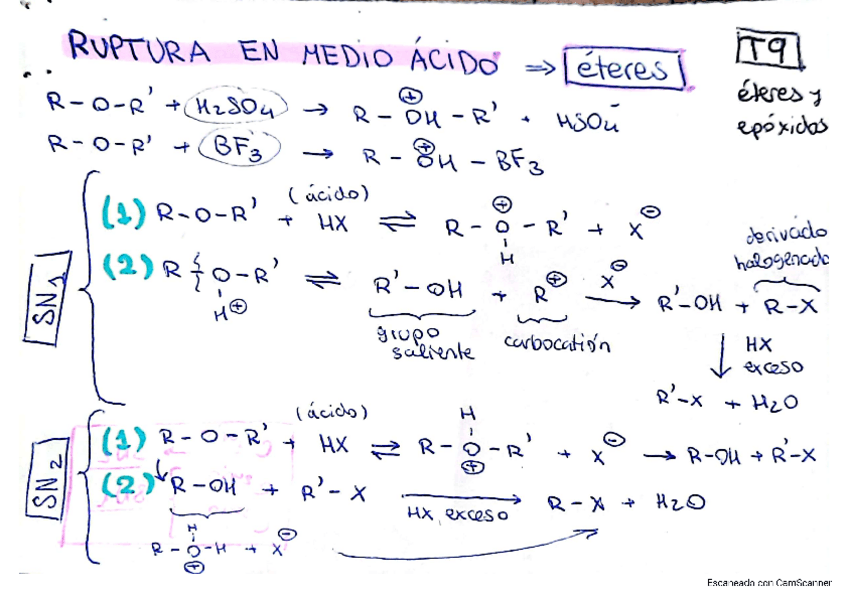 RUPTURA EN MEDIO ÁCIDO ⇒ éteres
T9
éteres y
epóxidos
R-O-R' + H₂SO₄ → R-OH⊕-R' + HSO₄⁻
R-O-R' + BF₃ → R-OH⊕-BF₃
SN₁
(1) R-O-R' + HX (ácido) ⇌ R-O⊕-R' + X⊖
H
(2) R-O-R' ⇌ R'-OH + R⊕ X⊖ → R'-OH + R-X
H⊕
grupo
saliente
carbocatión
derivado
halogenado
↓ HX
exceso
R'-X + H₂O
SN₂
(ácido)
H
(1) R-O-R' + HX ⇌ R-O-R' + X⊖ → R-OH + R'-X
⊕
(2) R-OH + R'-X → R-X + H₂O
HX, exceso
H
R-O-H + X⊖
⊕
Escaneado con CamScanner